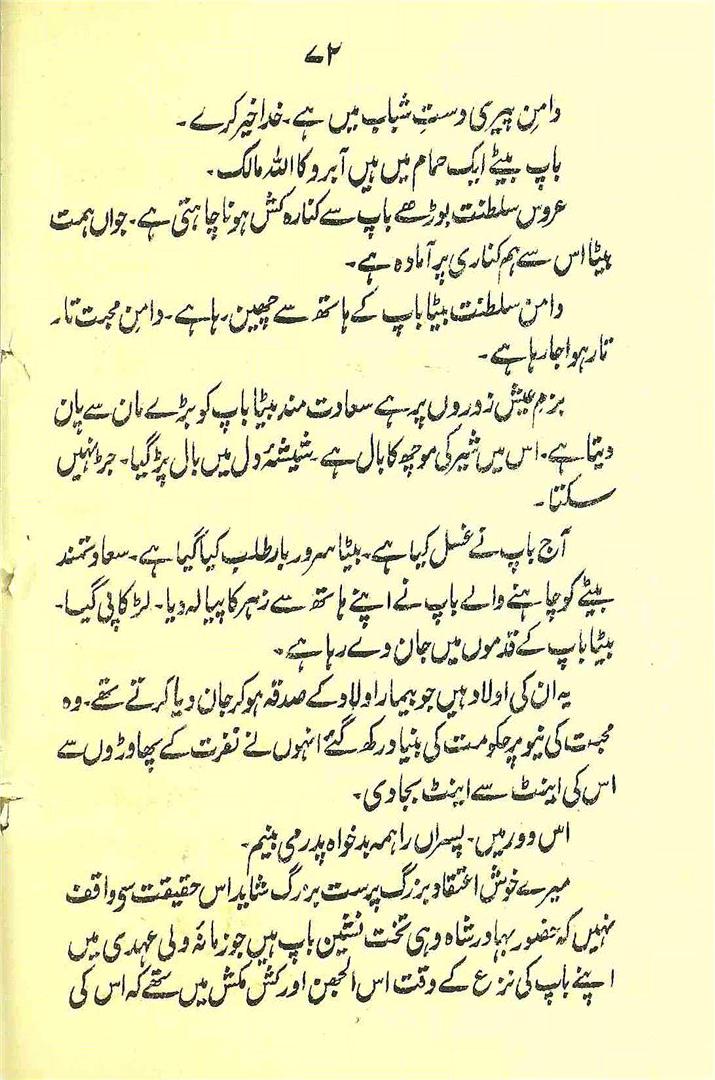 ۷۲
دامنِ پیری دستِ شباب میں ہے۔ خدا خیر کرے۔
باپ بیٹے ایک حمام میں ہیں آبرو کا اللہ مالک۔
عروس سلطنت بوڑھے باپ سے کنارہ کش ہونا چاہتی ہے۔ جواں ہمت
بیٹا اس سے ہم کناری پر آمادہ ہے۔
دامن سلطنت بیٹا باپ کے ہاتھ سے چھین رہا ہے۔ دامنِ محبت تار
تار ہوا جا رہا ہے۔
بزمِ عیش زوروں پر ہے سعادت مند بیٹا باپ کو بڑے مان سے پان
دیتا ہے۔ اس میں شیر کی مونچھ کا بال ہے۔ شیشۂ دل میں بال پڑ گیا۔ جڑ نہیں
سکتا۔
آج باپ نے غسل کیا ہے۔ بیٹا سرِ دربار طلب کیا گیا ہے۔ سعادتمند
بیٹے کو چاہنے والے باپ نے اپنے ہاتھ سے زہر کا پیالہ دیا۔ لڑکا پی گیا۔
بیٹا باپ کے قدموں میں جان دے رہا ہے۔
یہ ان کی اولاد ہیں جو بیمار اولاد کے صدقہ ہو کر جان دیا کرتے تھے۔ وہ
محبت کی نیو پر حکومت کی بنیاد رکھ گئے انہوں نے نفرت کے پھاوڑوں سے
اس کی اینٹ سے اینٹ بجا دی۔
اس دور میں۔ پسراں را ہمہ بدخواہ پدر می بینم۔
میرے خوش اعتقاد بزرگ پرست بزرگ شاید اس حقیقت سے واقف
نہیں کہ حضور بہادر شاہ وہی تخت نشین باپ ہیں جو زمانۂ ولی عہدی میں
اپنے باپ کی نزع کے وقت اس الجھن اور کش مکش میں تھے کہ اس کی